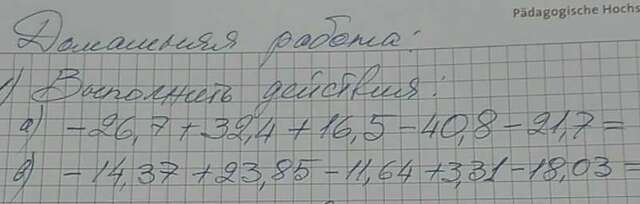 Pädagogische Hochs
Домашняя работа:
1) Выполнить действия:
а) -26,7+32,4+16,5-40,8-21,7=
в) -14,37+23,85-11,64+3,31-18,03=